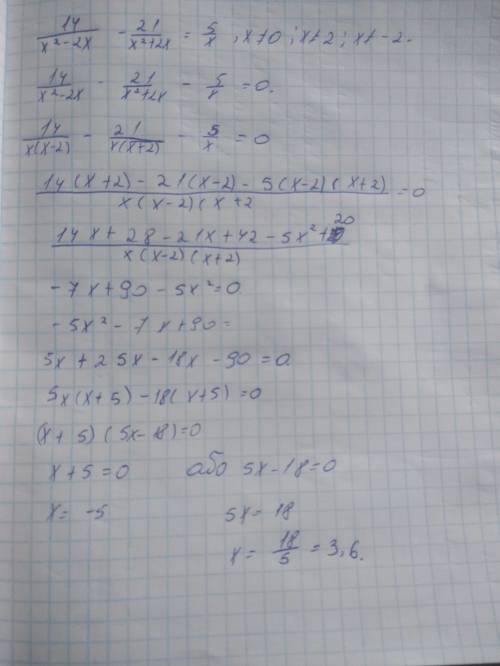 14/(x²-2x) - 21/(x²+2x) = 5/x, x≠0; x≠2; x≠-2.
14/(x²-2x) - 21/(x²+2x) - 5/x = 0.
14/(x(x-2)) - 21/(x(x+2)) - 5/x = 0
(14(x+2) - 21(x-2) - 5(x-2)(x+2))/(x(x-2)(x+2) = 0
(14x + 28 - 21x + 42 - 5x² + 20)/(x(x-2)(x+2))
-7x + 90 - 5x² = 0
-5x² - 7x + 90 =
5x + 25x - 18x - 90 = 0
5x(x+5) - 18(x+5) = 0
(x+5)(5x-18) = 0
x+5 = 0 або 5x-18 = 0
x = -5 5x = 18
x = 18/5 = 3,6.